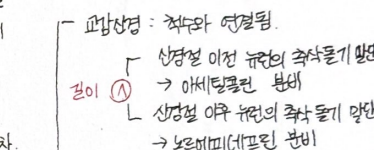 교감신경 : 척수와 연결됨.
신경절 이전 뉴런의 축삭돌기 말단
→ 아세틸콜린 분비
길이 ①
신경절 이후 뉴런의 축삭돌기 말단
→ 노르에피네프린 분비